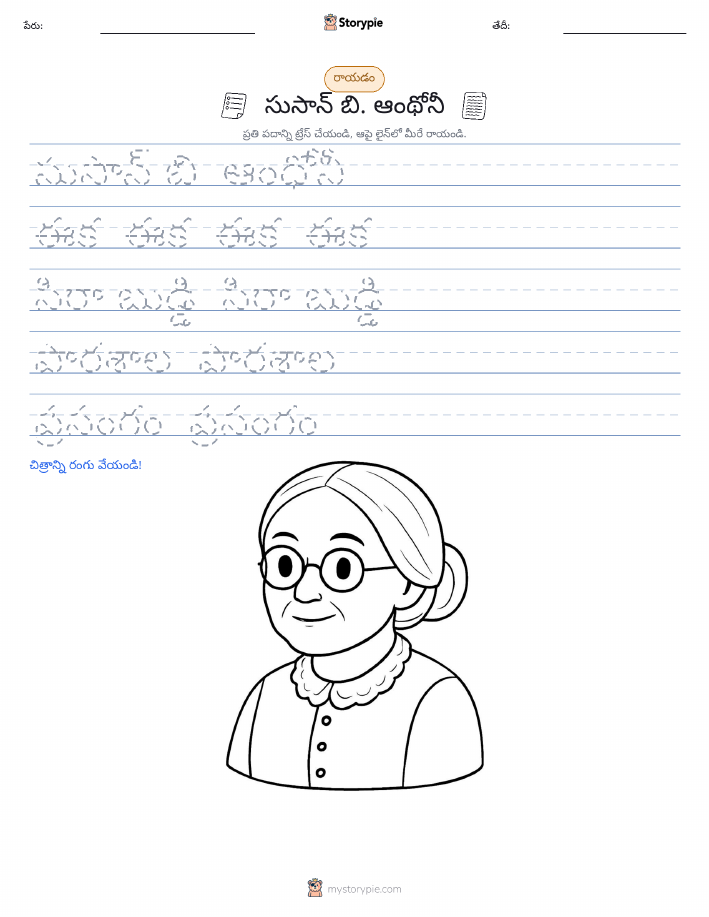 పేరు:
Storypie
తేదీ:
రాయడం
సుసాన్ బి. ఆంథోనీ
ప్రతి పదాన్ని ట్రేస్ చేయండి, ఆపై లైన్‌లో మీరే రాయండి.
సుసాన్ బి ఆంథోనీ
ఈక ఈక ఈక ఈక
సిరా బుడ్డి సిరా బుడ్డి
పాఠశాల పాఠశాల
ప్రసంగం ప్రసంగం
చిత్రాన్ని రంగు వేయండి!
mystorypie.com